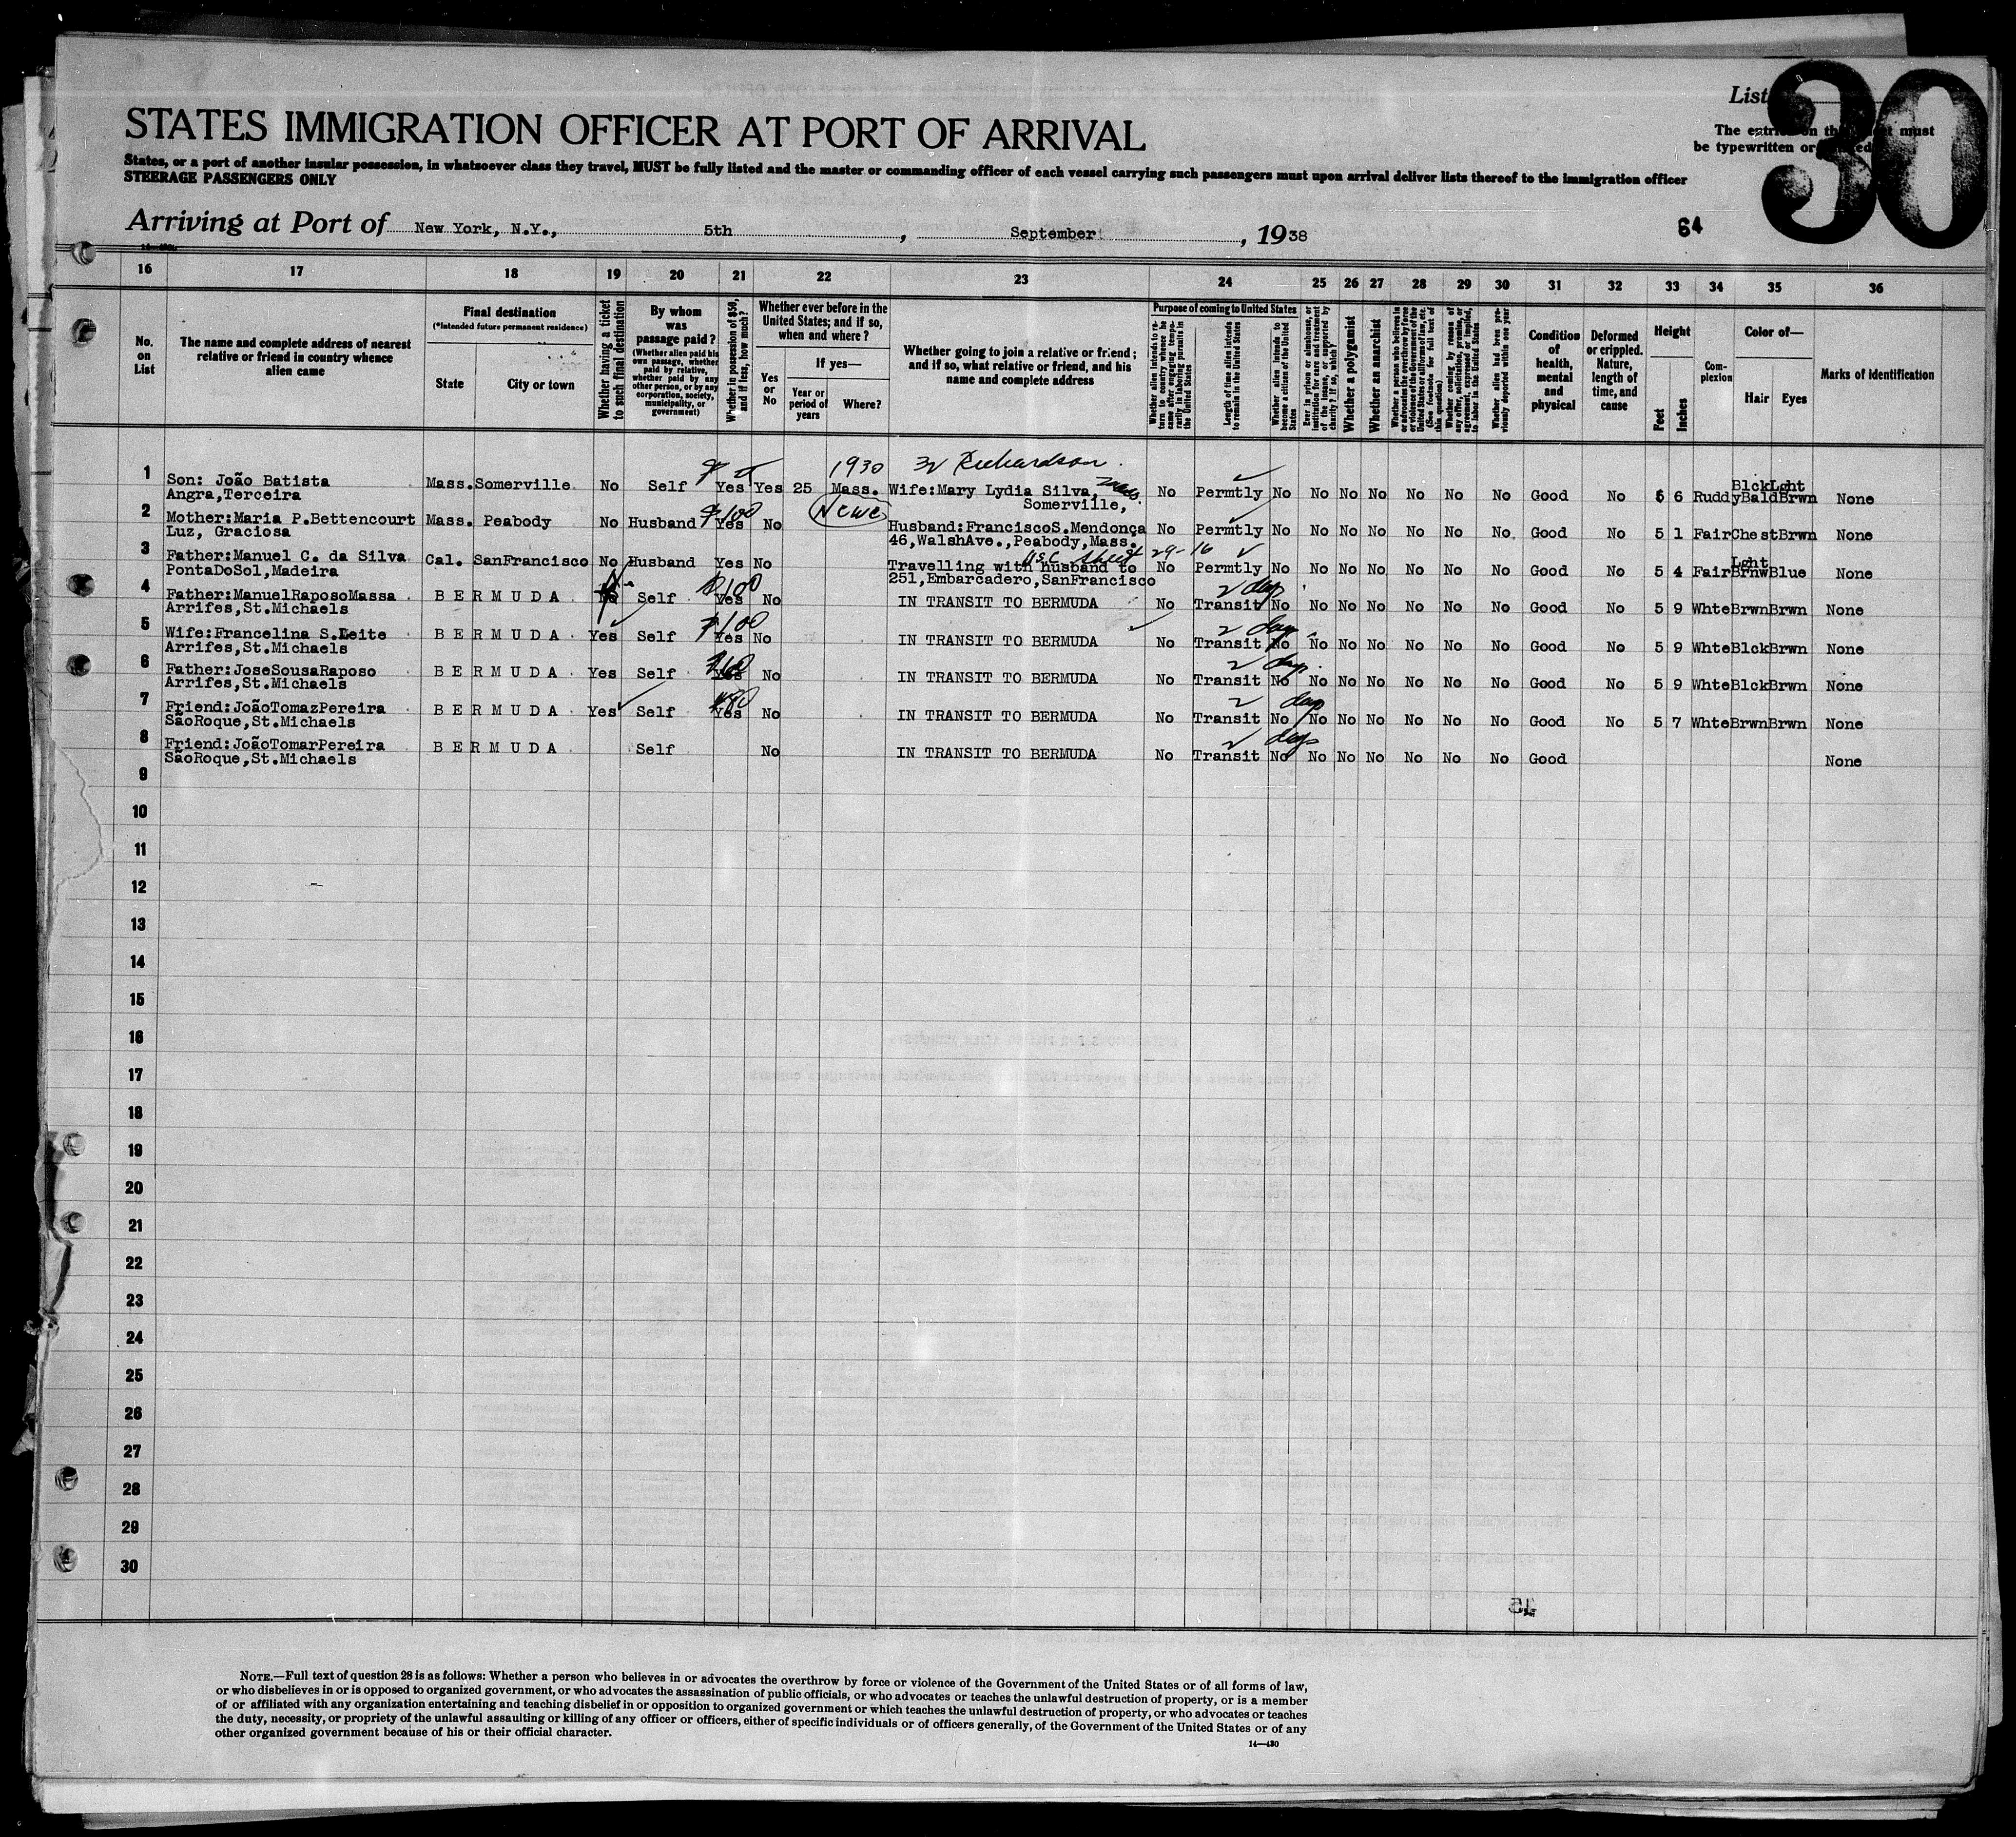 List
30
The entries on this sheet must
be typewritten or printed
STATES IMMIGRATION OFFICER AT PORT OF ARRIVAL
States, or a port of another insular possession, in whatsoever class they travel, MUST be fully listed and the master or commanding officer of each vessel carrying such passengers must upon arrival deliver lists thereof to the immigration officer
STEERAGE PASSENGERS ONLY
Arriving at Port of New York, N.Y., 5th, September, 1938
64
16 17 18 19 20 21 22 23 24 25 26 27 28 29 30 31 32 33 34 35 36
No. on List
The name and complete address of nearest relative or friend in country whence alien came
Final destination
(*Intended future permanent residence)
State
City or town
Whether having a ticket to such final destination
By whom was passage paid?
(Whether alien paid his own passage, whether paid by relative, whether paid by any other person, or by any corporation, society, municipality, or government)
Whether in possession of $50, and if less, how much?
Whether ever before in the United States; and if so, when and where?
Yes or No
If yes—
Year or period of years
Where?
Whether going to join a relative or friend; and if so, what relative or friend, and his name and complete address
Purpose of coming to United States
Whether alien intends to return to country whence he came after engaging temporarily in laboring pursuits in the United States
Length of time alien intends to remain in the United States
Whether alien intends to become a citizen of the United States
Ever in prison or almshouse, or institution for care and treatment of the insane, or supported by charity? If so, which?
Whether a polygamist
Whether an anarchist
Whether a person who believes in or advocates the overthrow by force or violence of the Government of the United States or all forms of law, etc. (See footnote for full text of this question)
Whether coming by reason of any offer, solicitation, promise, or agreement, expressed or implied, to labor in the United States
Whether alien had been previously deported within one year
Condition of health, mental and physical
Deformed or crippled. Nature, length of time, and cause
Height
Feet
Inches
Complexion
Color of—
Hair
Eyes
Marks of identification
1930 32 Richardson
1 Son: João Batista Mass. Somerville No Self Yes Yes 25 Mass. Wife:Mary Lydia Silva, Mass No Permtly No No No No No No No Good No 6 Ruddy BlckBald LghtBrwn None
Angra,Terceira Somerville,
2 Mother:Maria P.Bettencourt Mass. Peabody No Husband $100 Yes No (Newc) Husband:FranciscoS.Mendonça No Permtly No No No No No No No Good No 5 1 Fair Chest Brwn None
Luz, Graciosa 46,WalshAve.,Peabody,Mass.
3 Father:Manuel C. da Silva Cal. SanFrancisco No Husband Yes No Travelling with husband to No Permtly No No No No No No No Good No 5 4 Fair LghtBrnw Blue None
PontaDoSol,Madeira 251,Embarcadero,SanFrancisco
4 Father:ManuelRaposoMassa BERMUDA Self $100 Yes No IN TRANSIT TO BERMUDA No 2 days Transit No No No No No No No Good No 5 9 Whte Brwn Brwn None
Arrifes,St.Michaels
5 Wife:Francelina S.Leite BERMUDA Yes Self $100 Yes No IN TRANSIT TO BERMUDA No 2 days Transit No No No No No No No Good No 5 9 Whte Blck Brwn None
Arrifes,St.Michaels
6 Father:JoseSousaRaposo BERMUDA Yes Self Yes No IN TRANSIT TO BERMUDA No 2 days Transit No No No No No No No Good No 5 9 Whte Blck Brwn None
Arrifes,St.Michaels
7 Friend:JoãoTomazPereira BERMUDA Yes Self Yes No IN TRANSIT TO BERMUDA No 2 days Transit No No No No No No No Good No 5 7 Whte Brwn Brwn None
SãoRoque,St.Michaels
8 Friend:JoãoTomarPereira BERMUDA Self No IN TRANSIT TO BERMUDA No 2 days Transit No No No No No No No Good None
SãoRoque,St.Michaels
9
10
11
12
13
14
15
16
17
18
19
20
21
22
23
24
25
26
27
28
29
30
NOTE.—Full text of question 28 is as follows: Whether a person who believes in or advocates the overthrow by force or violence of the Government of the United States or of all forms of law,
or who disbelieves in or is opposed to organized government, or who advocates the assassination of public officials, or who advocates or teaches the unlawful destruction of property, or is a member
of or affiliated with any organization entertaining and teaching disbelief in or opposition to organized government or which teaches the unlawful destruction of property, or who advocates or teaches
the duty, necessity, or propriety of the unlawful assaulting or killing of any officer or officers, either of specific individuals or of officers generally, of the Government of the United States or of any
other organized government because of his or their official character.
14—430